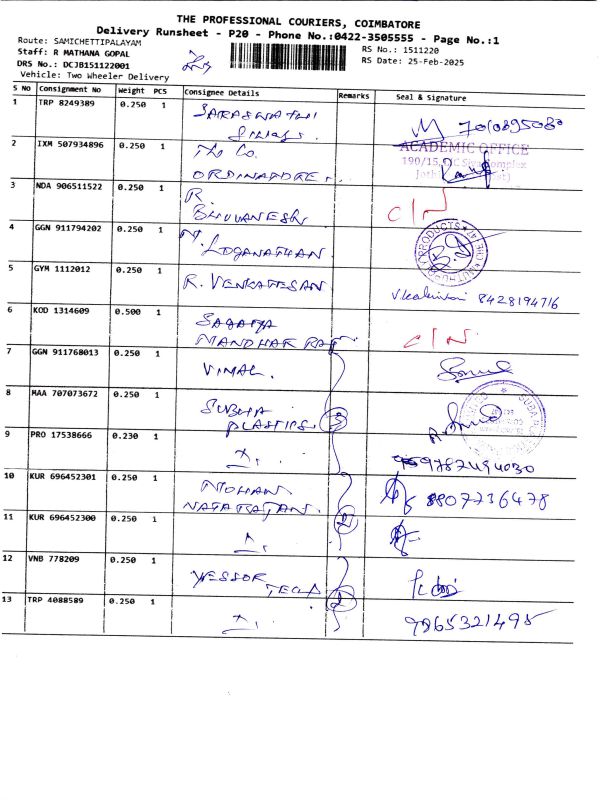 THE PROFESSIONAL COURIERS, COIMBATORE
Delivery Runsheet - P20 - Phone No.:0422-3505555 - Page No.:1
Route: SAMICHETTIPALAYAM
RS No.: 1511220
Staff: R MATHANA GOPAL
DRS No.: DCJB151122001
RS Date: 25-Feb-2025
Vehicle: Two Wheeler Delivery
S No Consignment No Weight PCS Consignee Details Remarks Seal & Signature
1 TRP 8249389 0.250 1 SARASWATHI
7010895080
2 IXM 507934896 0.250 1 The Co.
ACADEMIC OFFICE
190/15,
3 NDA 906511522 0.250 1 R.
BHUVANESH
C/N
4 GGN 911794202 0.250 1 N.
LOGANATHAN
5 GYM 1112012 0.250 1 R. VENKATESAN
8428194716
6 KOD 1314609 0.500 1
MANOHAR RAJ
C/N
7 GGN 911768013 0.250 1 VIMAL.
8 MAA 707073672 0.250 1 SUBHA
PLASTICS.
3
SUBA
9 PRO 17538666 0.230 1
10 KUR 696452301 0.250 1 MOHAN
NATARAJAN.
8807736478
2
11 KUR 696452300 0.250 1
12 VNB 778209 0.250 1 WESSOR
TECH
2
13 TRP 4088589 0.250 1
9865321495